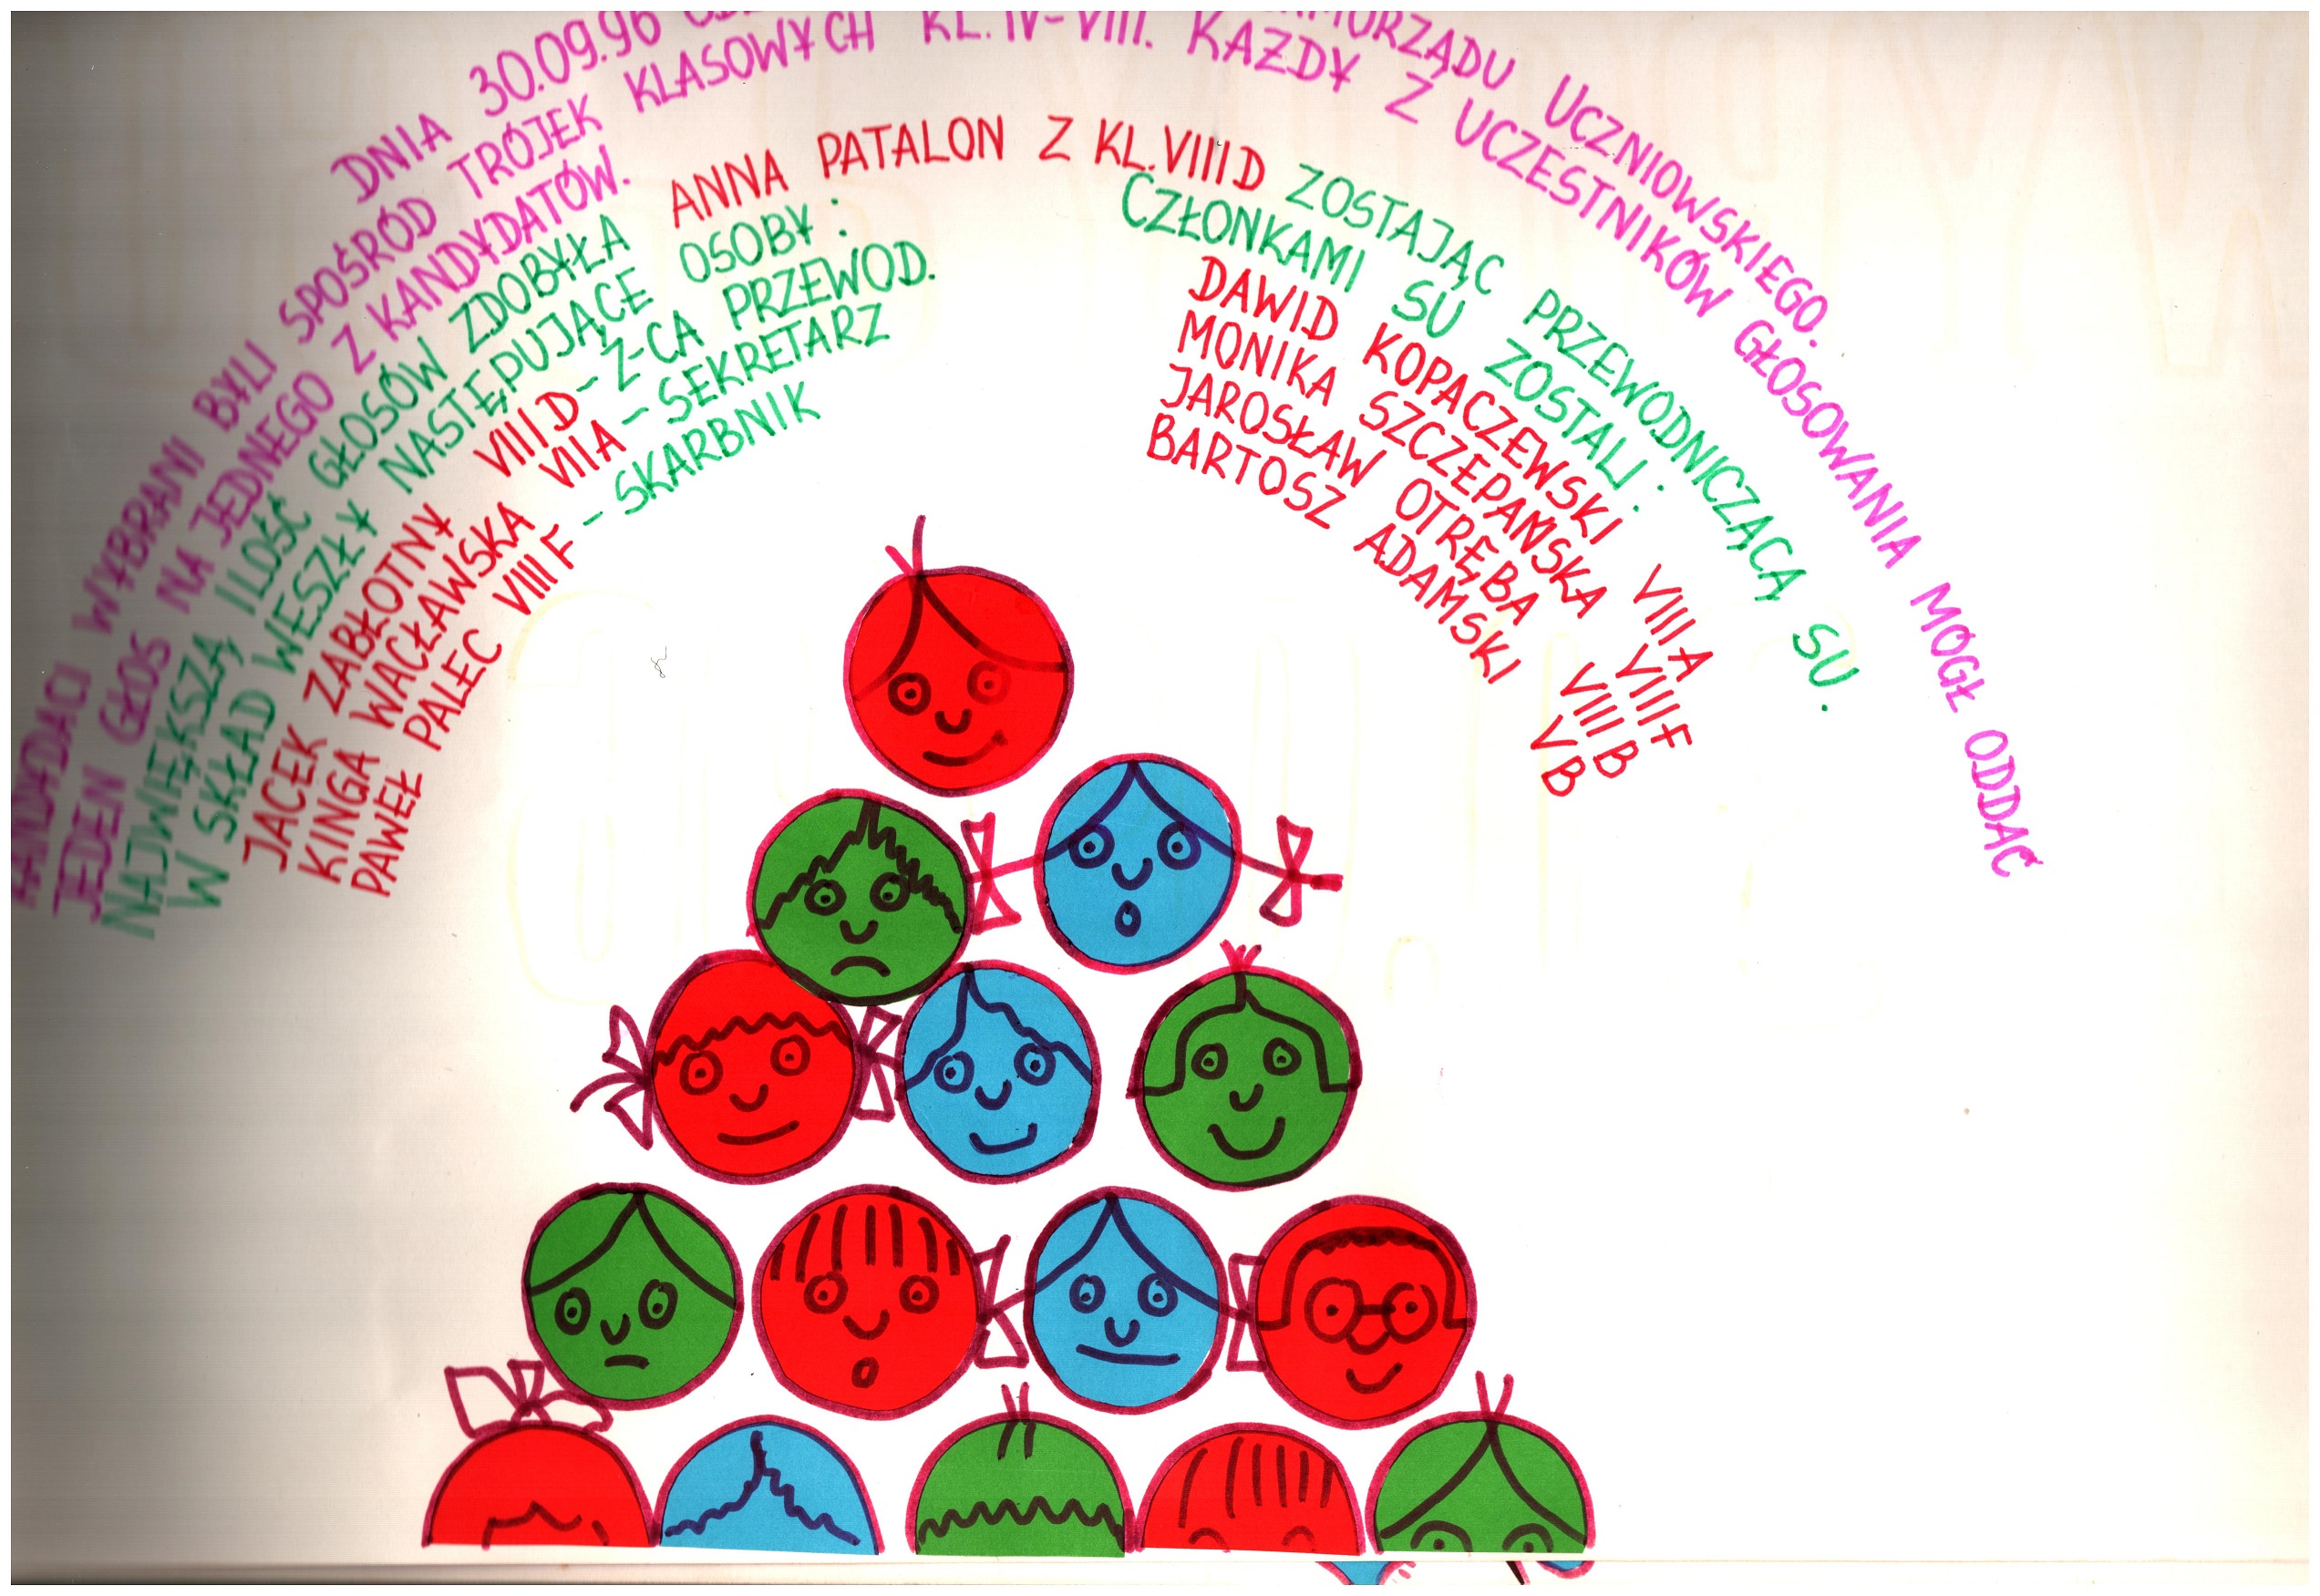 DNIA 30.09.96 UCZNIOWSKIEGO.
KANDYDACI WYBRANI BYLI SPOŚRÓD TRÓJEK KLASOWYCH KL. IV-VIII. KAŻDY Z UCZESTNIKÓW GŁOSOWANIA MÓGŁ ODDAĆ
JEDEN GŁOS NA JEDNEGO Z KANDYDATÓW.
NAJWIĘKSZĄ ILOŚĆ GŁOSÓW ZDOBYŁA ANNA PATALON Z KL. VIII D ZOSTAJĄC PRZEWODNICZĄCĄ SU.
W SKŁAD WESZŁY NASTĘPUJĄCE OSOBY:
JACEK ZABŁOTNY VIII D - Z-CA PRZEWOD.
KINGA WACŁAWSKA VII A - SEKRETARZ
PAWEŁ PALEC VIII F - SKARBNIK
CZŁONKAMI SU ZOSTALI:
DAWID KOPACZEWSKI VIII A
MONIKA SZCZEPAŃSKA VIII F
JAROSŁAW OTRĘBA VIII B
BARTOSZ ADAMSKI V B